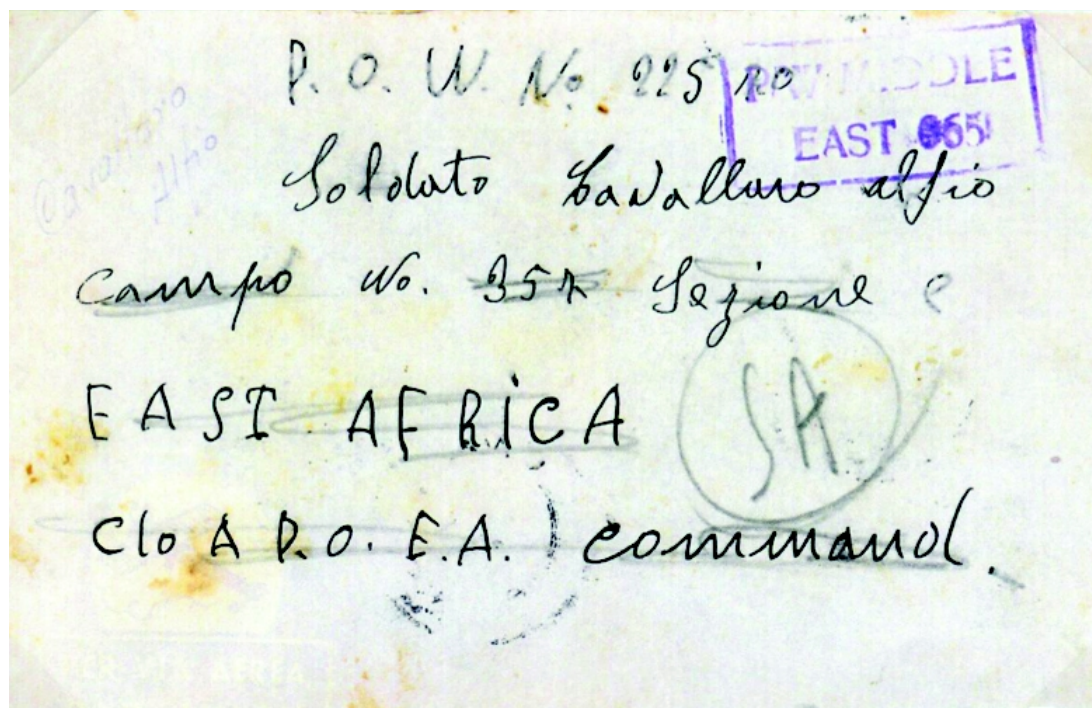 P. O. W. No. 22520
P/W MIDDLE
EAST 065
Soldato Cavallaro alfio
campo No. 357 Sezione e
EAST AFRICA
SA
C/o A P.O. E.A. command.